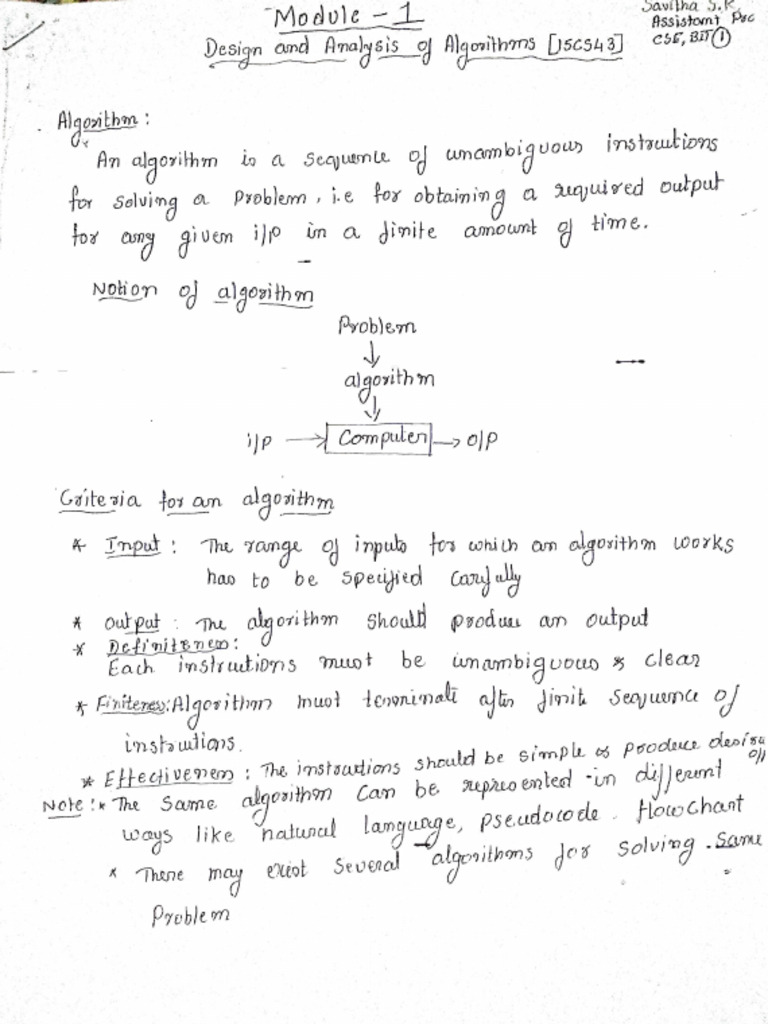 Module - 1
Savitha S.K
Assistant Proc
CSE, BIT ①
Design and Analysis of Algorithms [15CS43]
Algorithm :
An algorithm is a sequence of unambiguous instructions
for solving a problem, i.e for obtaining a required output
for any given i/p in a finite amount of time.
Notion of algorithm
Problem
↓
algorithm
↓
i/p → Computer → o/p
Criteria for an algorithm
* Input : The range of inputs for which an algorithm works
has to be specified carfully
* Output : The algorithm should produce an output
* Definiteness :
Each instructions must be unambiguous & clear
* Finiteness: Algorithm must terminate after finite sequence of
instructions.
* Effectiveness : The instructions should be simple & produce desire
o/p
Note : * The same algorithm can be represented in different
ways like natural language, pseudocode. flowchart
* There may exist several algorithms for solving same
Problem